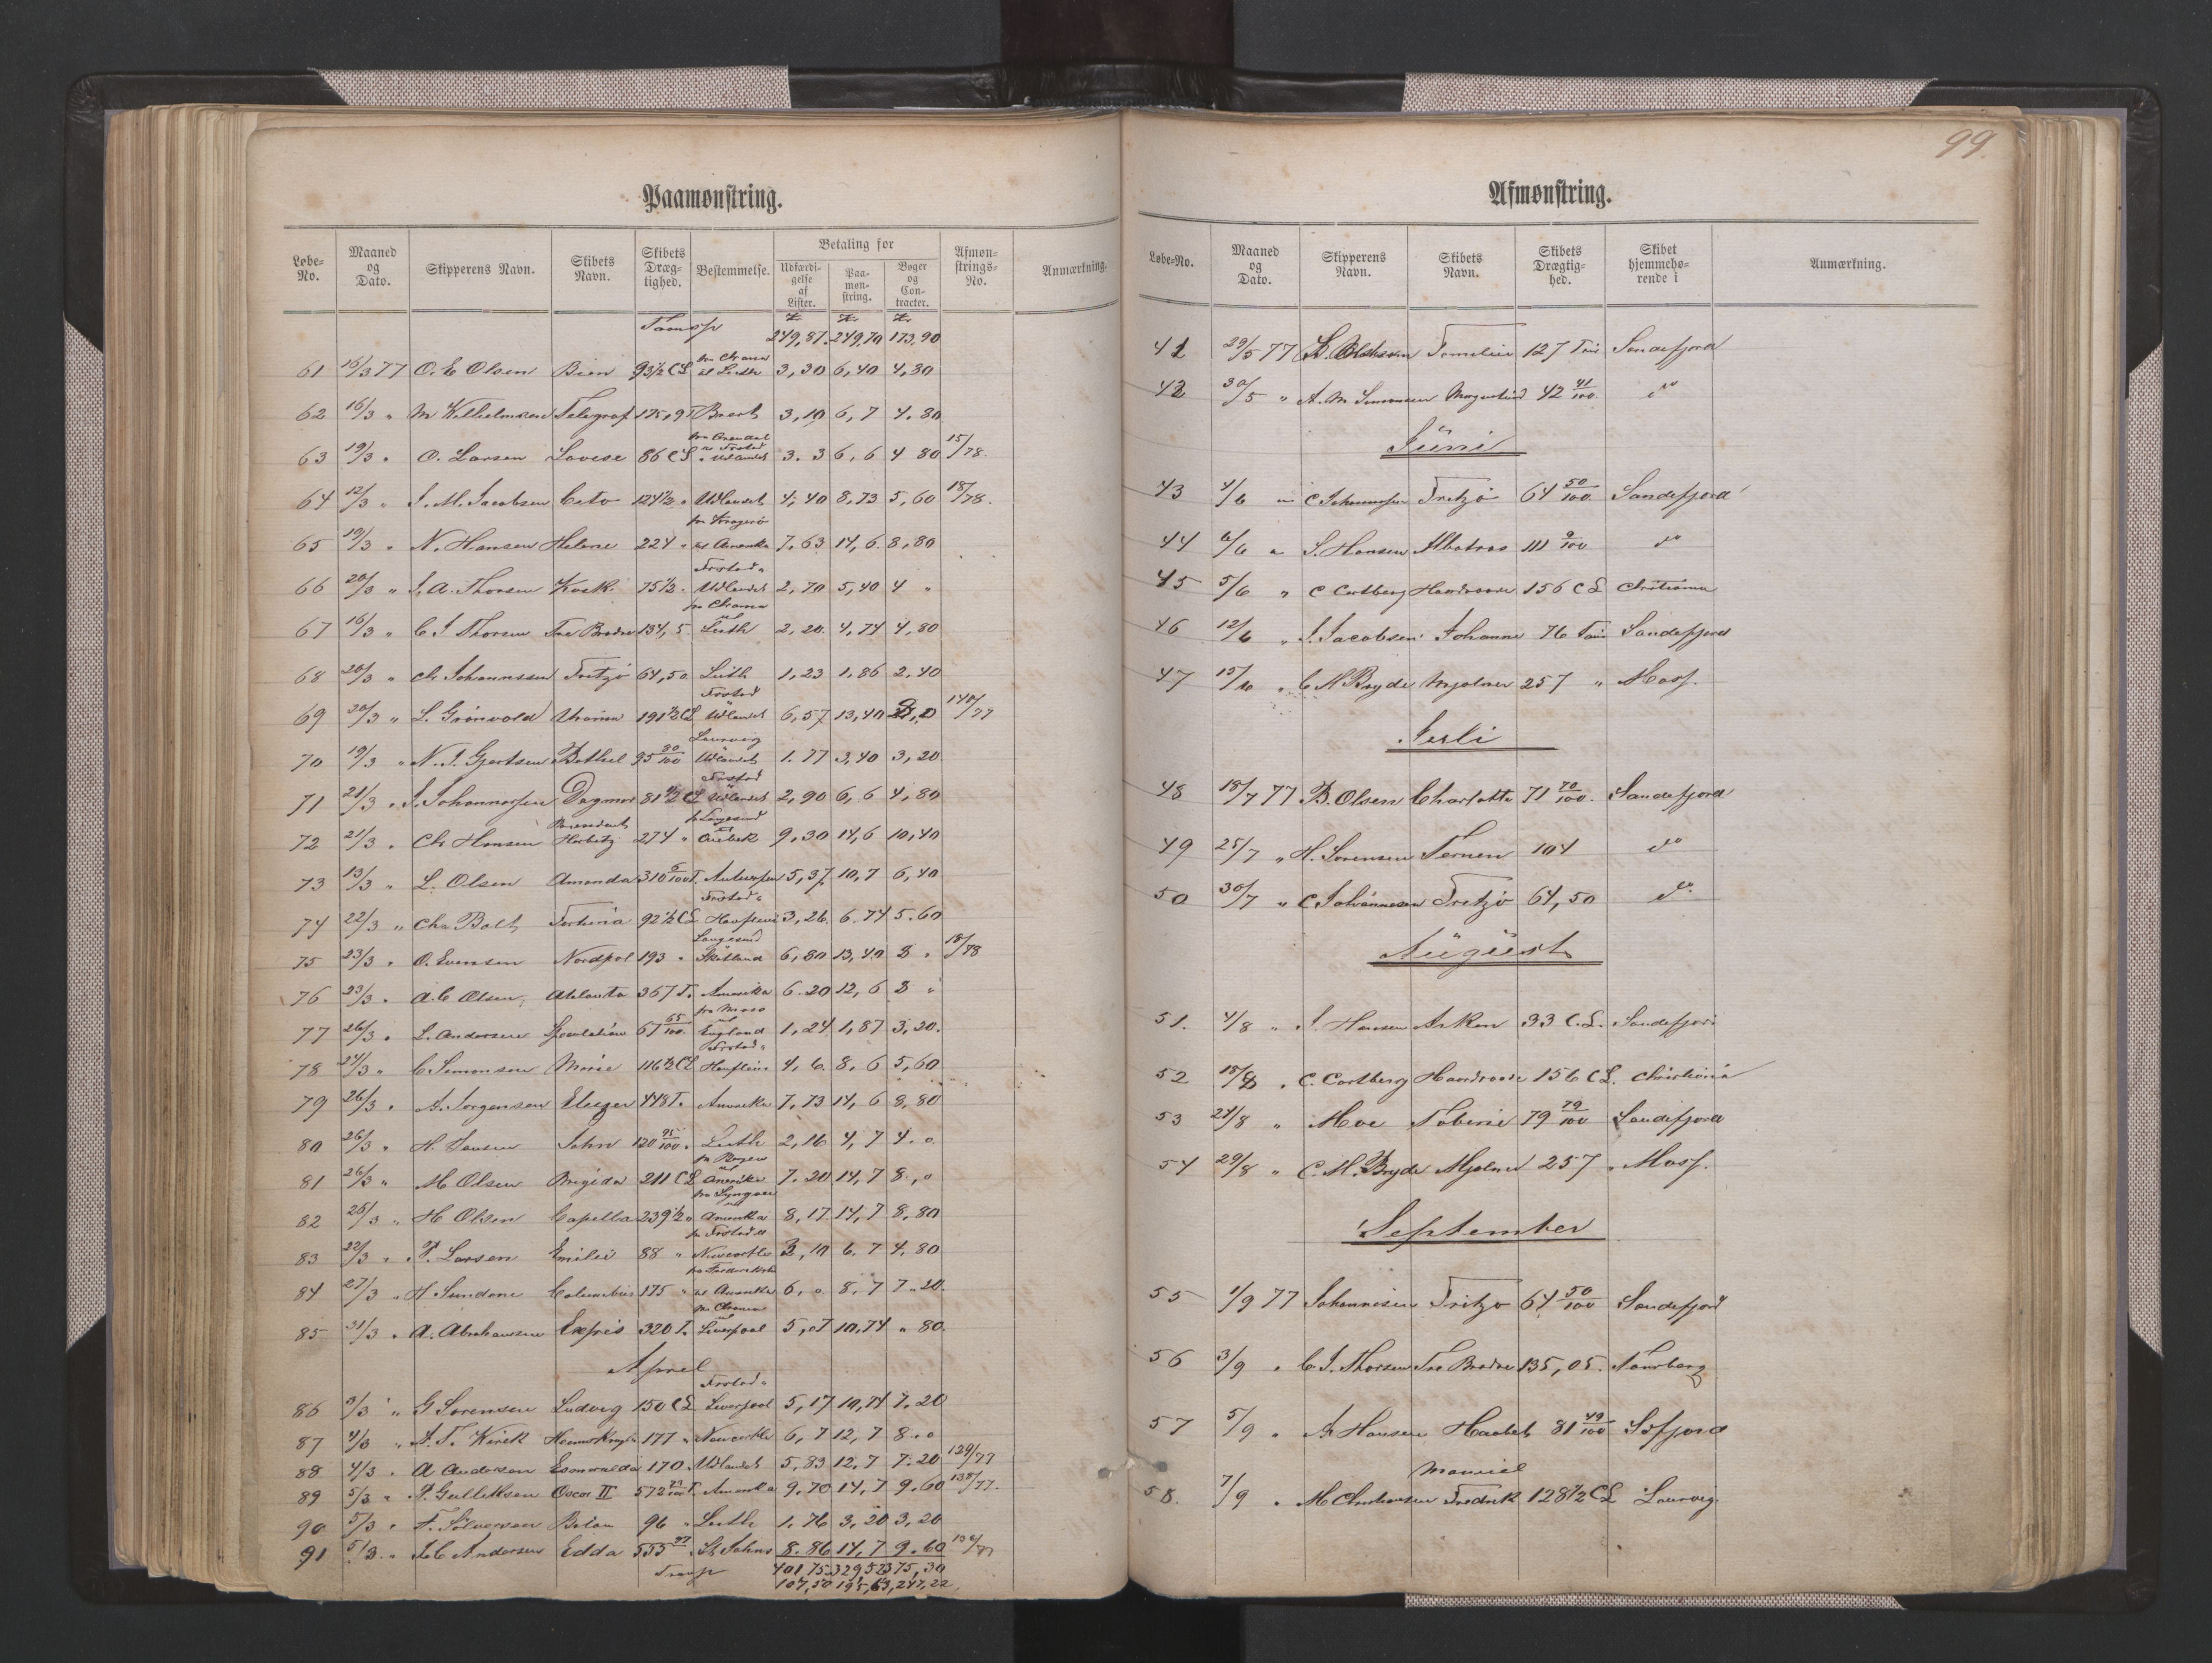 Paamønstring.
Løbe-No. Maaned og Dato. Skipperens Navn. Skibets Navn. Skibets Dræg-tighed. Bestemmelse. Betaling for Udfærdi-gelse af Lister. Paa-møn-string. Bøger og Con-tracter. Afmøn-strings-No. Anmærkning.
Transp 249,87. 249,70 173,90
61 16/3 77 O. E Olsen Bien 93½ CL til Leith 3,30 6,40 4,80
62 16/3 " M Wilhelmsen Telegraf 175,9 T Brest 3,10 6,7 4,80
63 19/3 " O. Larsen Lovise 86 CL Udlandet 3.3 6,6 4 80 15/78.
64 12/3 " J. M. Jacobsen Ceto 124½ " Udlandet 4,40 8,73 5,60 18/78.
65 19/3 " N. Hansen Helene 224 " fra Kragerö til Amerika 7.63 14,6. 8,80
66 20/3 " J. A. Thorsen Kosk. 75½ " Frstad " Udlandet 2,70 5,40 4 "
67 16/3 " C J Thorsen Tre Brødre 134,5 Leith 2,20. 4,74 4,80
68 20/3 " Ch Johannssen Fritzö 64,50 Leith 1,23 1.86 2.40
69 20/3 " L. Grönvold Urania 191½ CL Frstad Udlandet 6,57 13,40 140/77
70 19/3 " N. J. Gjertsen Bethel 95 80/100 Laurvig Udlandet 1.77 3,40 3,20
71 21/3 " J. Johannesen Dagmar 81½ CL Frstad Udlandet 2,90 6,6 4,80
72 21/3 " Ch Hansen Præsident Harbitz 274 " fr Langesund Quebek 9.30 14,6 10,40
73 13/3 " L. Olsen Amanda 310 6/100 T. Antwerpen 5,37. 10,7 6,40
74 22/3 " Chr Bolt Fortuna 92½ CL Frstad " Harfleur 3,26. 6.74 5.60
75 23/3 " O. Evensen Nordpol 193 " Langesund Skotland 6,80 13,40 8 " 18/78
76 23/3 " A. C Olsen Atlanta 367 T. Amerika 6.20 12,6 8 "
77 26/3 " L. Andersen Spekulation 67 65/100 fra Moss England 1,24 1,87 3,20.
78 24/3 " C Simonsen Marie 116½ CL Frstad " Harfleur 4,6. 8,6 5,60
79 26/3 " A. Jörgensen Eliezer 448 T. Amerika 7,73 14,6 8,80
80 26/3 " H. Jensen John 120 95/100 " Leith 2,16 4,7 4.0
81 26/3 " M Olsen Brigida 211 CL fra Bergen Amerika 7.20 14,7 8,0
82 26/3 " H Olsen Capella 239½ " Amerika 8,17. 14,7 8,80
83 22/3 " P. Larsen Emilie 88 " fra Frstad til Newcastle 3,10 6.7 4.80
84 27/3 " H Sundene Columbus 175 " til Amerika 6,0. 8,7 7.20.
85 31/3 " A. Abrahamsen Expres 320 T. Liverpool 5,07 10,74 " 80.
April
86 3/3 " G Sørensen Ludvig 150 CL Frstad " Liverpool 5,17 10,74 7.20
87 4/3 " A. T. Kirek 177 " Newcastle 6,7 12,7 8.0
88 4/3 " A Andersen Esmeralda 170. Udlandet 5.83 12,7 7.20 129/77
89 5/3 " P. Gulliksen Oscar II 572 T. Amerika 9,70 14,7 9.60 138/77.
90 5/3 " F. Sölversen Belau 96 " Leith 1.76 3,20 3,20
91 5/3 " Joh. C Andersen Edda 555 St Johns 8.86 14,7 9.60 130/77
Transp 401,75. 329,52 375,30
107,50 195,63, 247,22
99.
Afmønstring.
Løbe-No. Maaned og Dato. Skipperens Navn. Skibets Navn. Skibets Drægtig-hed. Skibet hjemmehø-rende i Anmærkning.
41 29/5 77 Familien 127 Tons Sandefjord
42 30/5 " A. M Simonsen 42 41/100. do
Juni
43 4/6 " C Johannesen Fritzö 64 50/100 Sandefjord
44 6/6 " S. Hansen Albatros 111 9/100 do
45 5/6 " C Cortberg Haardraade 156 CL Christiania
46 12/6 " J. Jacobsen Johanne 76 Tons Sandefjord
47 15/6 " C M Bryde Mjølner 257 " Moss.
Juli
48 18/7 77 B. Olsen Charlotte 71 70/100. Sandefjord
49 25/7 " H. Sørensen Ternen 104 do
50 30/7 " C Johannesen Fritzö 64,50 do.
August
51. 4/8 " J Hansen Arken 33 C.L. Sandefjord
52 18/8 " C. Cortberg Haardraade 156 CL. Christiania
53 24/8 " Moe Tobine 79 79/100 Sandefjord
54 29/8 " C. M. Bryde Mjølner 257 " Moss.
September
55 1/9 77 Johannesen Fritzö 64 50/100 Sandefjord
56 3/9 " C. J. Thorsen Tre Brødre 135,05. Tønsberg
57 5/9 " A Hansen Haabet 81 49/100 Sdfjord
58. 7/9 " M Christiansen Fredrik 128½ CL Laurvig.